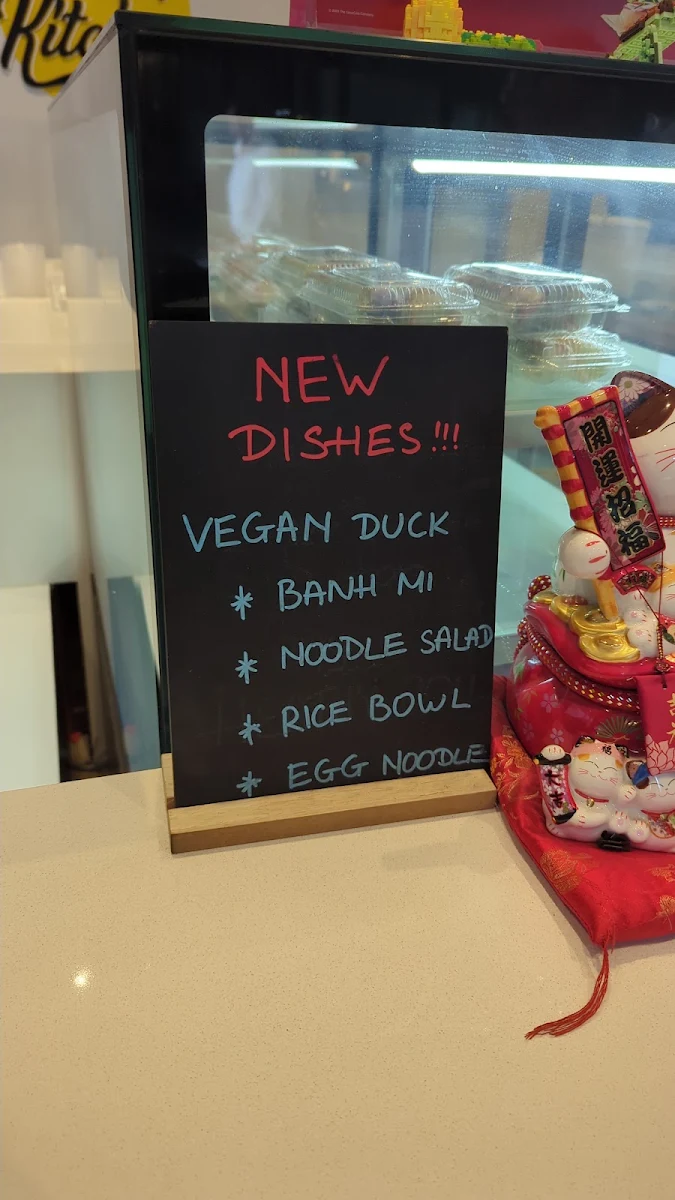 Kitch
NEW
DISHES!!!
VEGAN DUCK
* BANH MI
* NOODLE SALAD
* RICE BOWL
* EGG NOODLE
開運招福
大吉